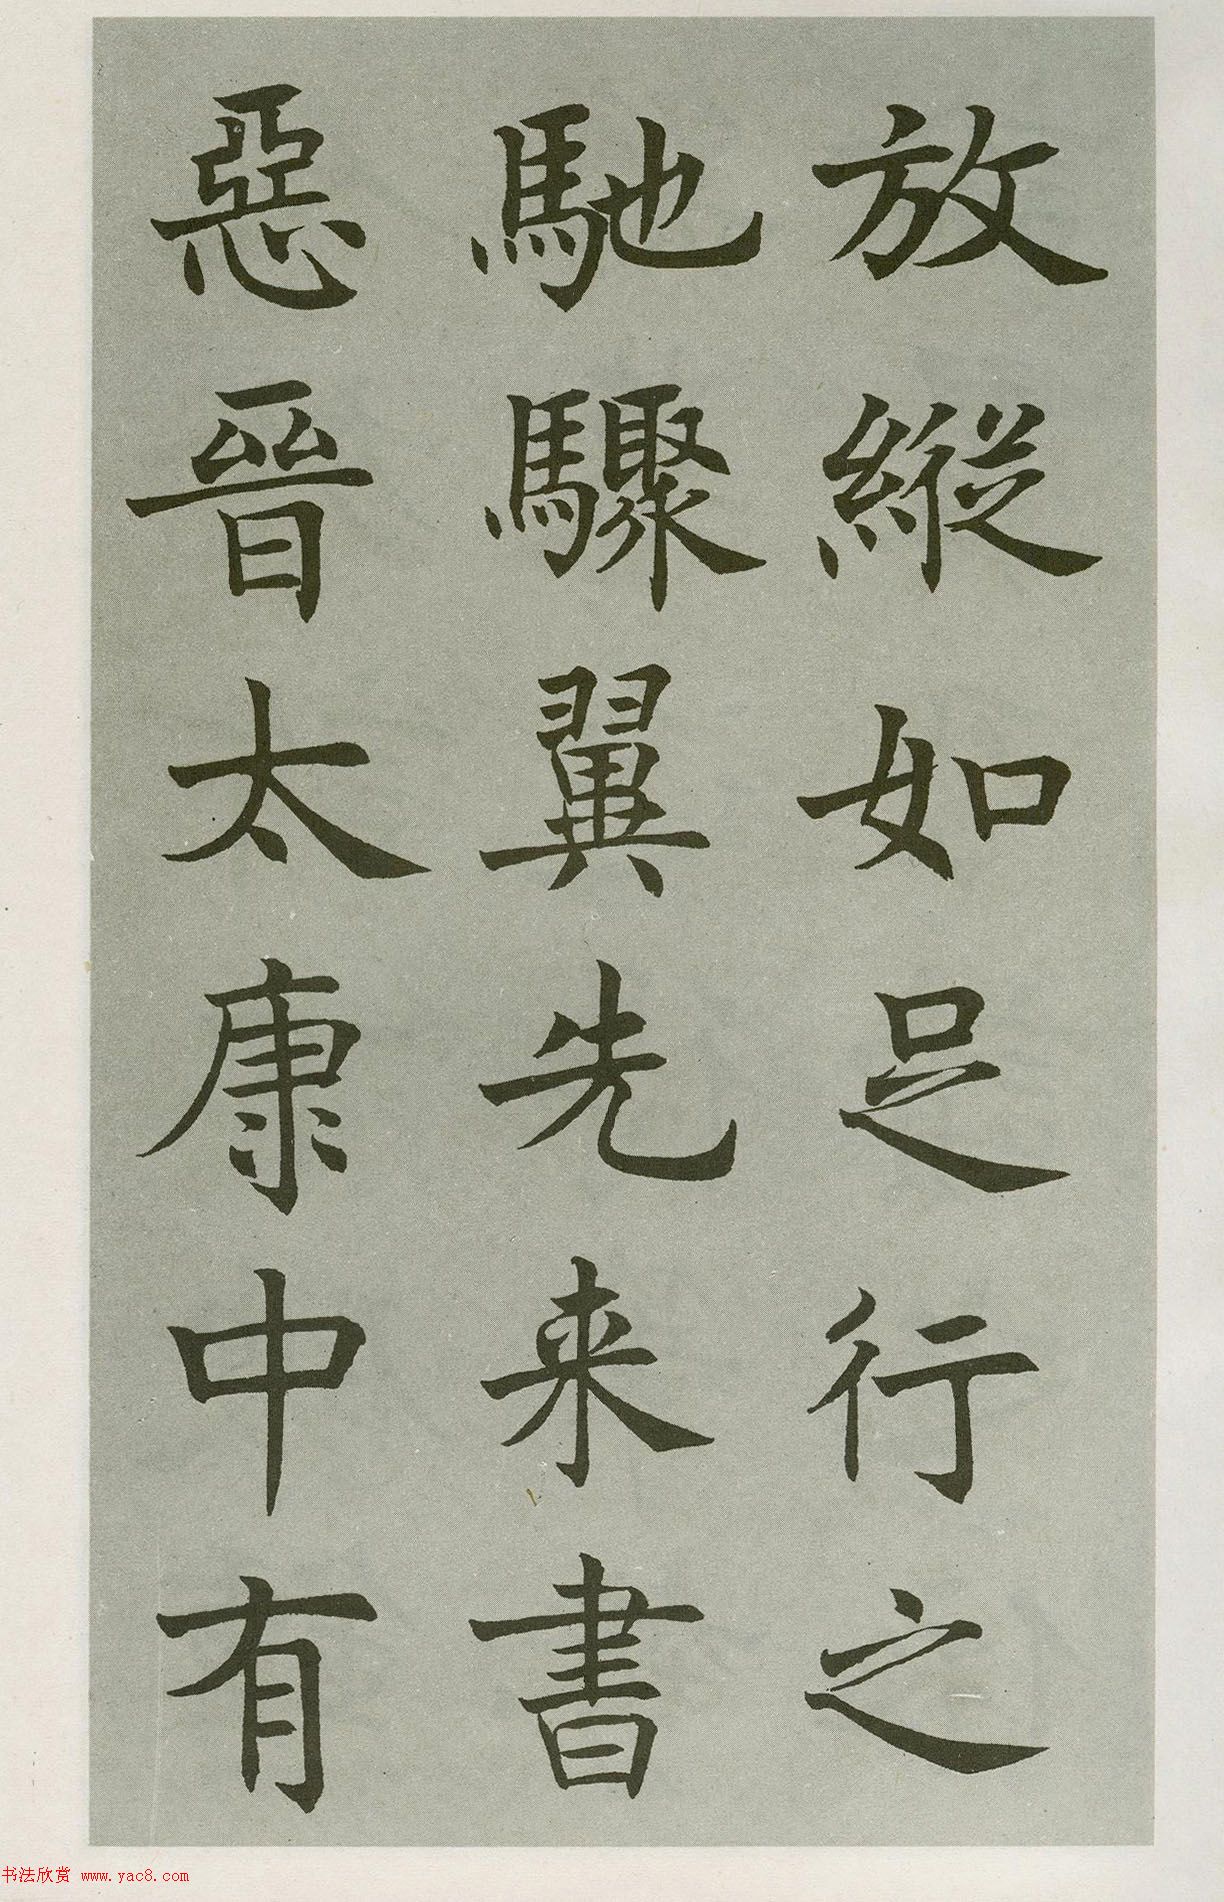 放縱如足行之
馳驟翼先来書
惡晉太康中有
书法欣赏 www.yac8.com